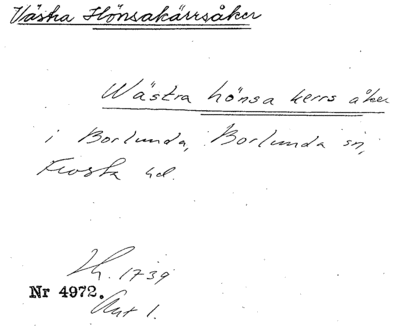 Västra Hönsakärrsåker
Wästra hönsa kerrs åker
i Borlunda, Borlunda sn,
Frosta hd.
Lh. 1739
Nr 4972.
Akt 1.